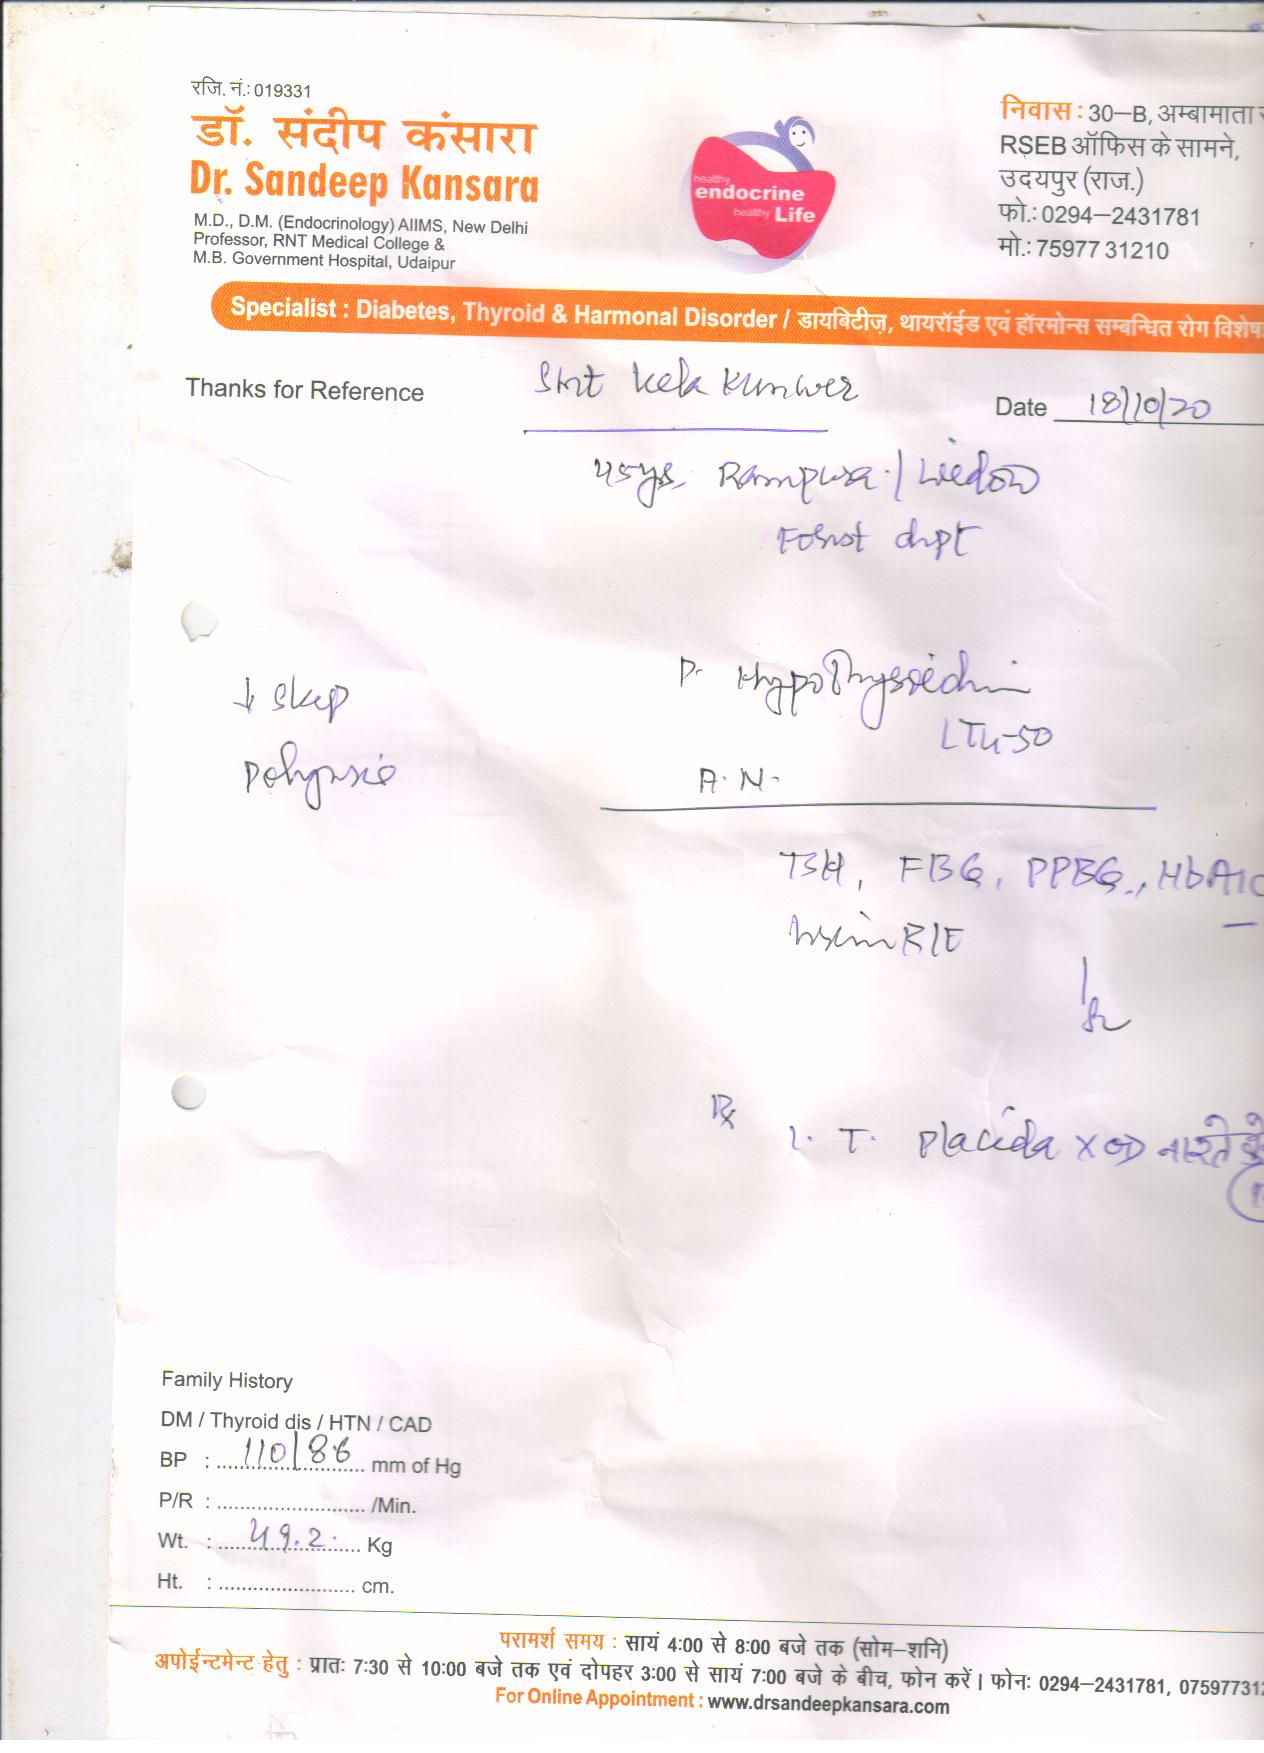 रजि. नं.: 019331
डॉ. संदीप कंसारा
Dr. Sandeep Kansara
M.D., D.M. (Endocrinology) AIIMS, New Delhi
Professor, RNT Medical College &
M.B. Government Hospital, Udaipur
healthy
endocrine
healthy Life
निवास : 30–B, अम्बामाता
RSEB ऑफिस के सामने,
उदयपुर (राज.)
फो.: 0294–2431781
मो.: 75977 31210
Specialist : Diabetes, Thyroid & Harmonal Disorder / डायबिटीज़, थायरॉईड एवं हॉरमोन्स सम्बन्धित रोग विशेष
Thanks for Reference
Smt Kunwer
Date 18/10/20
45ys, Rampura / Widow
Forest dept
P. Hypothyroidism
LTU-50
A. N.
↓ Sleep
TSH, FBG, PPBG, HbA1C
R/E
Rx
1. T. Placida x नाश्ते
Family History
DM / Thyroid dis / HTN / CAD
BP : 110/86 mm of Hg
P/R : /Min.
Wt. : 49.2 Kg
Ht. : cm.
परामर्श समय : सायं 4:00 से 8:00 बजे तक (सोम–शनि)
अपोईन्टमेन्ट हेतु : प्रातः 7:30 से 10:00 बजे तक एवं दोपहर 3:00 से सायं 7:00 बजे के बीच, फोन करें । फोनः 0294–2431781, 075977312
For Online Appointment : www.drsandeepkansara.com